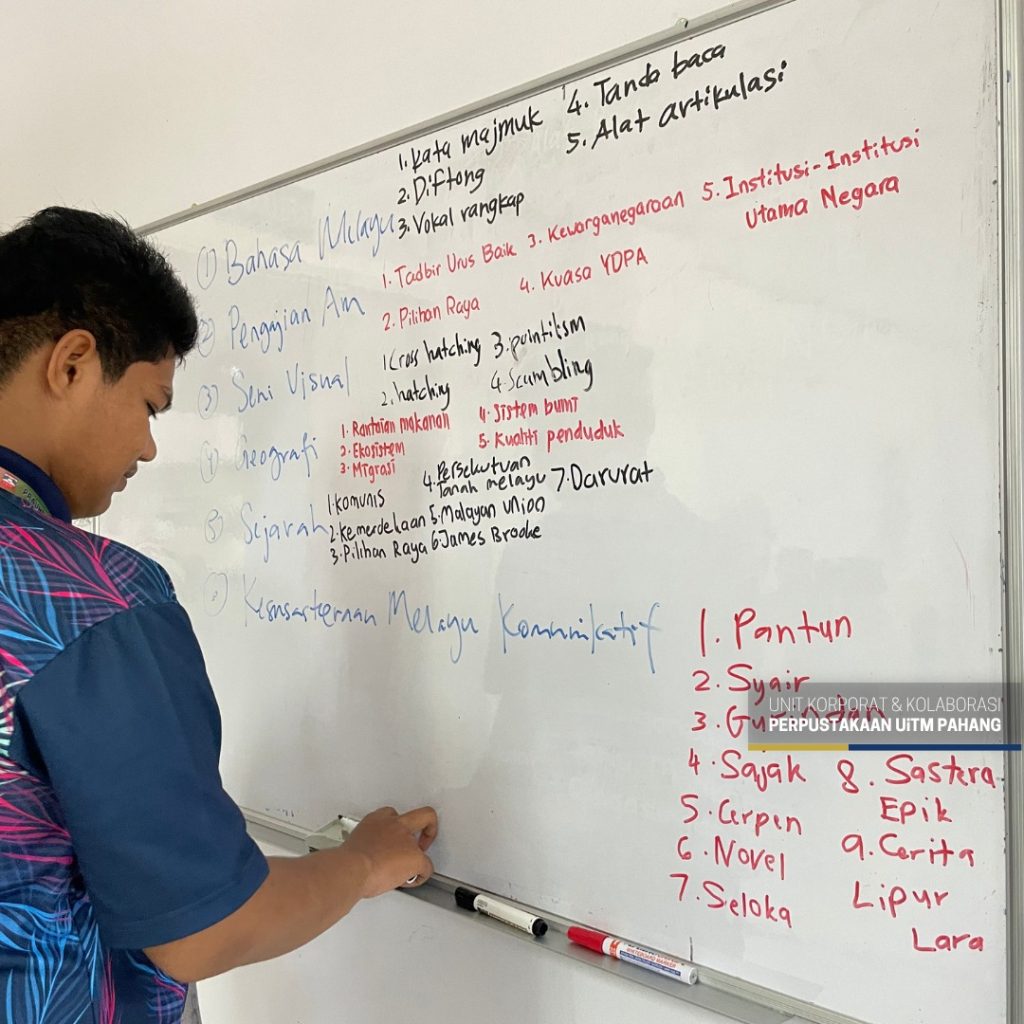 1. Kata majmuk
2. Diftong
3. Vokal rangkap
4. Tanda baca
5. Alat artikulasi
① Bahasa Melayu
1. Tadbir Urus Baik
2. Pilihan Raya
3. Kewarganegaraan
4. Kuasa YDPA
5. Institusi-Institusi
Utama Negara
② Pengajian Am
1. Cross hatching
2. hatching
3. pointilism
4. Scumbling
③ Seni Visual
1. Rantaian makanan
2. Ekosistem
3. Migrasi
4. Sistem bumi
5. Kualiti penduduk
④ Geografi
1. Komunis
2. Kemerdekaan
3. Pilihan Raya
4. Persekutuan
Tanah melayu
5. Malayan Union
6. James Brooke
7. Darurat
⑤ Sejarah
⑥ Kesusasteraan Melayu Komunikatif
1. Pantun
2. Syair
3. Gurindam
4. Sajak
5. Cerpen
6. Novel
7. Seloka
8. Sastera
Epik
9. Cerita
Lipur
Lara
UNIT KORPORAT & KOLABORASI
PERPUSTAKAAN UiTM PAHANG